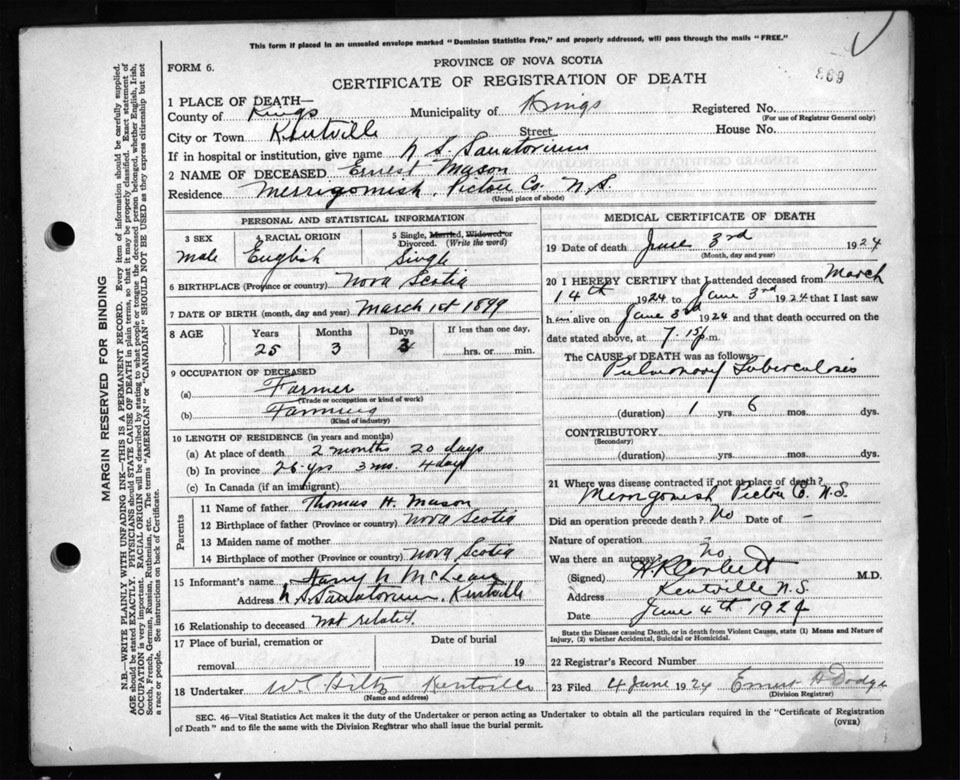 This form if placed in an unsealed envelope marked "Dominion Statistics Free," and properly addressed, will pass through the mails "FREE."
869
FORM 6.
PROVINCE OF NOVA SCOTIA
CERTIFICATE OF REGISTRATION OF DEATH
1 PLACE OF DEATH—
County of Kings Municipality of Kings Registered No.
(For use of Registrar General only)
City or Town Kentville Street House No.
If in hospital or institution, give name N S. Sanatorium
2 NAME OF DECEASED Ernest Mason
Residence Merrigomish, Pictou Co. N.S.
(Usual place of abode)
PERSONAL AND STATISTICAL INFORMATION
3 SEX 4 RACIAL ORIGIN 5 Single, Married, Widowed or Divorced. (Write the word)
Male English Single
6 BIRTHPLACE (Province or country) Nova Scotia
7 DATE OF BIRTH (month, day and year) March 1st 1899
8 AGE Years Months Days If less than one day,
25 3 3 hrs. or min.
9 OCCUPATION OF DECEASED
(a) Farmer
(Trade or occupation or kind of work)
(b) Farming
(Kind of industry)
10 LENGTH OF RESIDENCE (in years and months)
(a) At place of death 2 months 20 days
(b) In province 26 yrs 3 mo. 4 days
(c) In Canada (if an immigrant)
Parents
11 Name of father Thomas H. Mason
12 Birthplace of father (Province or country) Nova Scotia
13 Maiden name of mother
14 Birthplace of mother (Province or country) Nova Scotia
15 Informant's name Harry N McLean
Address N S Sanatorium, Kentville
16 Relationship to deceased not related.
17 Place of burial, cremation or removal Date of burial 19
18 Undertaker W.C. Hiltz Kentville
(Name and address)
MEDICAL CERTIFICATE OF DEATH
19 Date of death June 3rd 1924
(Month, day and year)
20 I HEREBY CERTIFY that I attended deceased from March
14th 1924 to June 3rd 1924 that I last saw
him alive on June 3rd 1924 and that death occurred on the
date stated above, at 7.15 p.m.
The CAUSE of DEATH was as follows:
Pulmonary Tuberculosis
(duration) 1 yrs. 6 mos. dys.
CONTRIBUTORY
(Secondary)
(duration) yrs. mos. dys.
21 Where was disease contracted if not at place of death?
Merrigomish Pictou C. N.S.
Did an operation precede death? No Date of —
Nature of operation
Was there an autopsy? No
(Signed) M.D.
Address Kentville N.S.
Date June 4th 1924
State the Disease causing Death, or in death from Violent Causes, state (1) Means and Nature of
Injury, (2) whether Accidental, Suicidal or Homicidal.
22 Registrar's Record Number
23 Filed 4 June 1924 Ernest H Dodge
(Division Registrar)
SEC. 46—Vital Statistics Act makes it the duty of the Undertaker or person acting as Undertaker to obtain all the particulars required in the "Certificate of Registration
of Death" and to file the same with the Division Registrar who shall issue the burial permit.
(OVER)
MARGIN RESERVED FOR BINDING
N.B.—WRITE PLAINLY WITH UNFADING INK—THIS IS A PERMANENT RECORD. Every item of information should be carefully supplied.
AGE should be stated EXACTLY. PHYSICIANS should STATE CAUSE OF DEATH in plain terms, so that it may be properly classified. Exact statement of
OCCUPATION is very important. RACIAL ORIGIN will be described by stating to what people or tongue the deceased person belonged, whether English, Irish,
Scotch, French, German, Russian, Ruthenian, etc. The terms "AMERICAN" or "CANADIAN" SHOULD NOT BE USED as they express citizenship but not
a race or people. See instructions on back of Certificate.